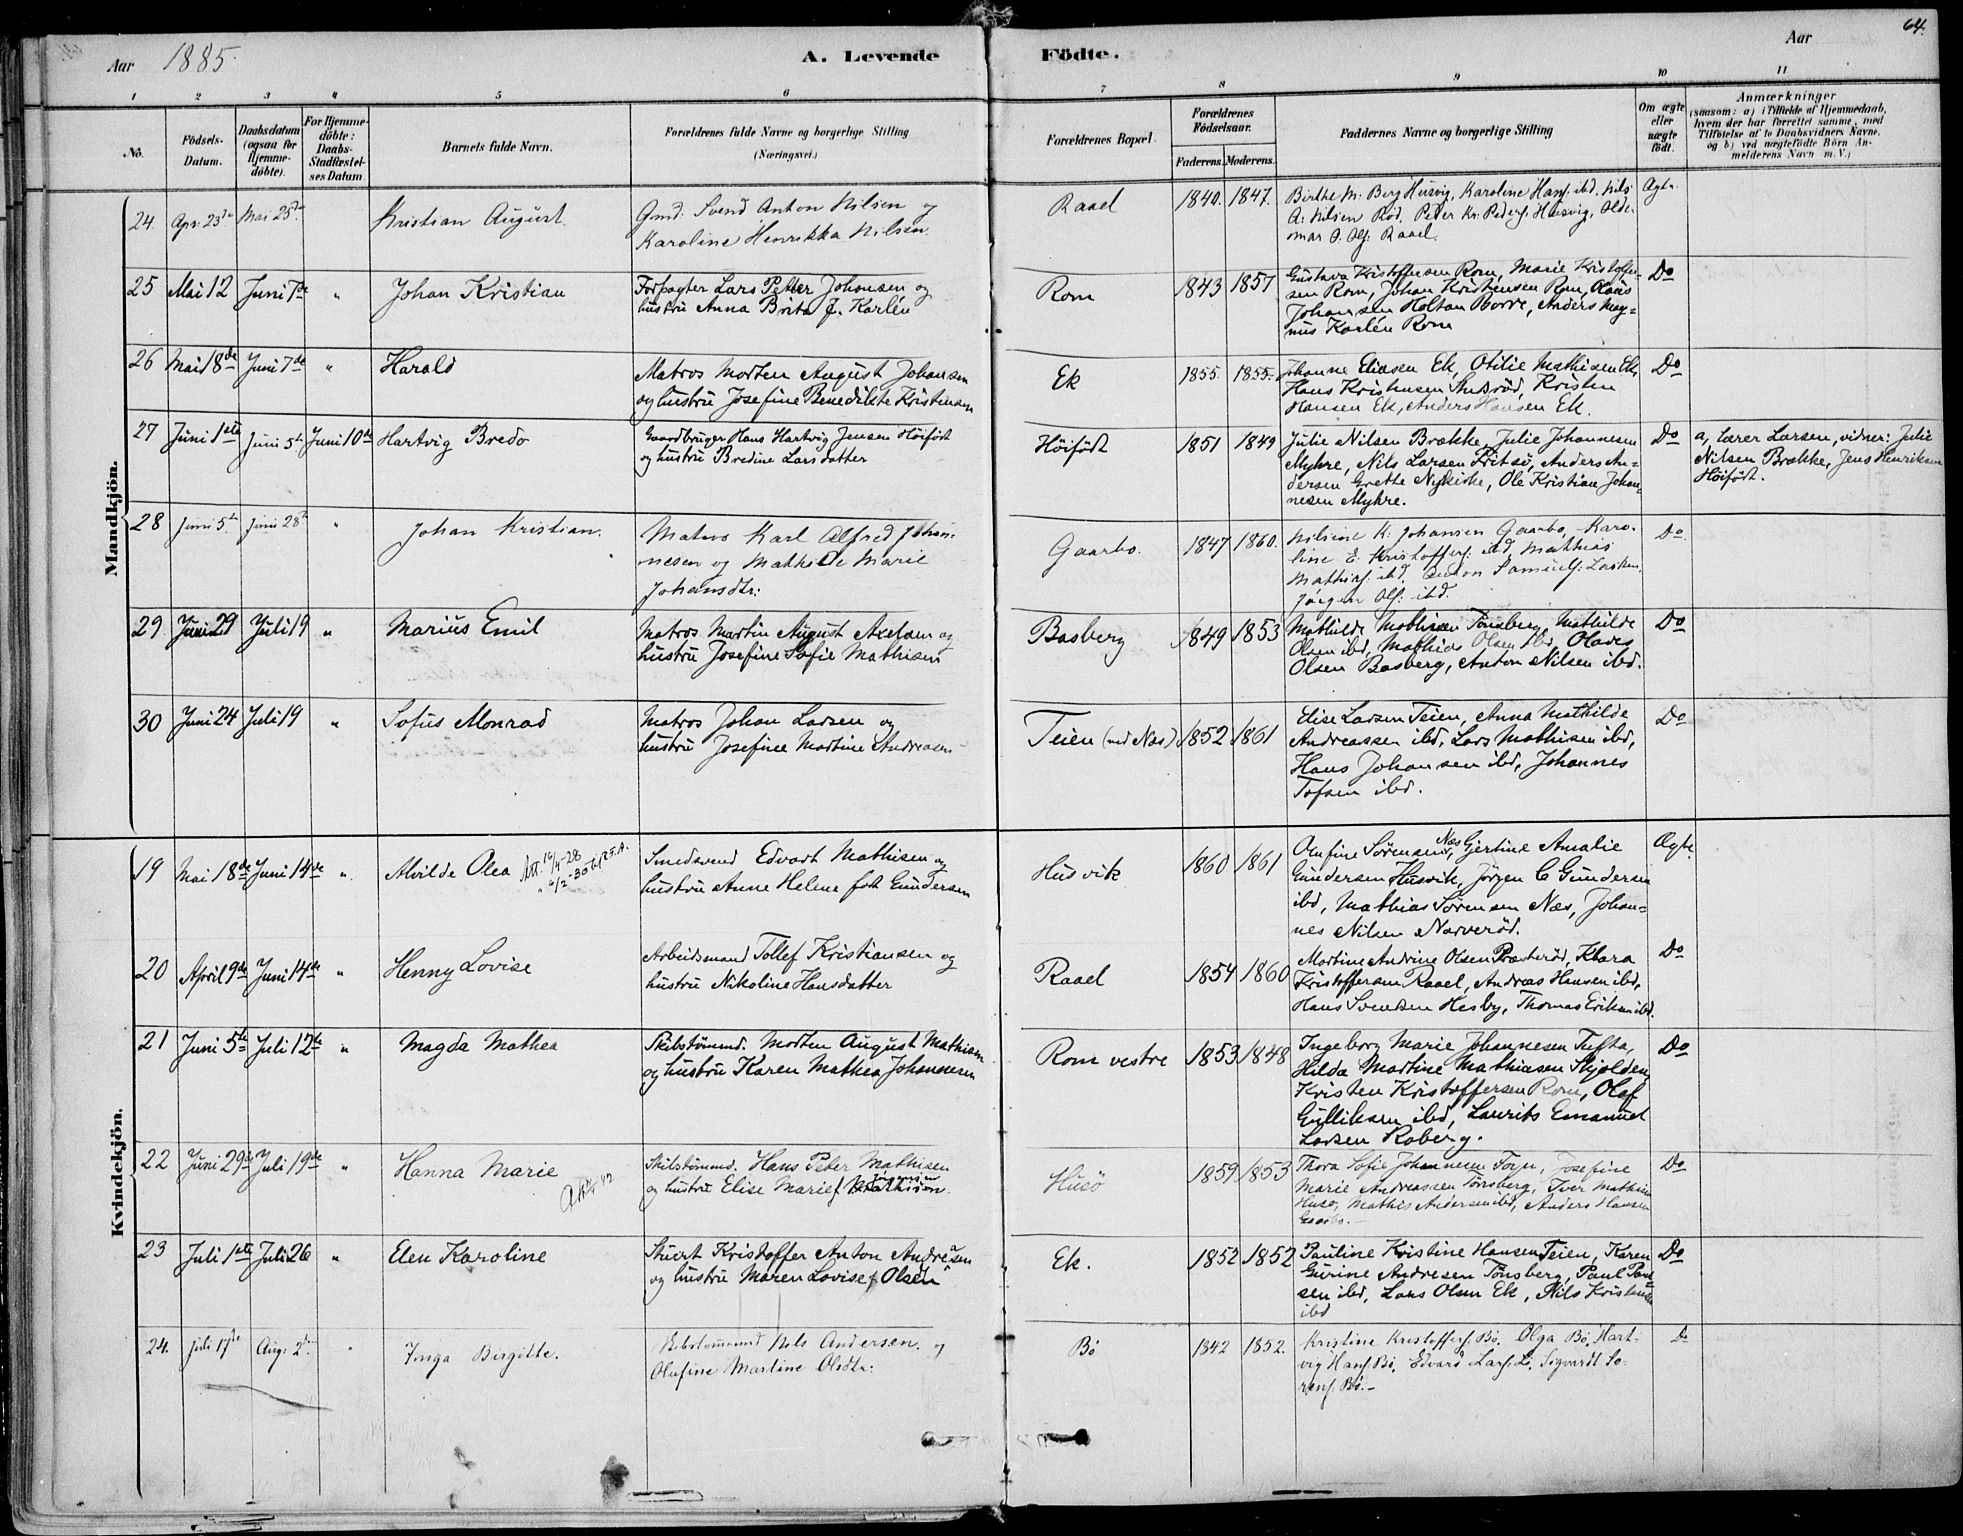 Aar 1885.
A. Levende Födte.
Aar
64.
1 2 3 4 5 6 7 8 9 10 11
No.
Födsels-
Datum.
Daabsdatum
(ogsaa for
Hjemme-
döbte).
For Hjemme-
döbte:
Daabs-
Stadfæstel-
ses Datum
Barnets fulde Navn.
Forældrenes fulde Navne og borgerlige Stilling
(Næringsvei.)
Forældrenes Bopæl.
Forældrenes
Födselsaar.
Faderens. Moderens.
Faddernes Navne og borgerlige Stilling
Om ægte
eller
uægte
födt.
Anmærkninger
(saasom: a) i Tilfælde af Hjemmedaab,
hvem der har forrettet samme, med
Tilföielse af to Daabsvidners Navne.
og b) ved uægtefödte Börn An-
melderens Navn m. V.)
Mandkjön.
24 Apr. 23de Mai 25de Kristian August.
Gmd: Svend Anton Nilsen og
Karoline Henrikka Nilsen.
Raael 1840. 1847.
Birthe M. Berg Husvig, Karoline Hans. ibd. Nils
A. Nilsen Rød. Peter Kr. Peders. Husvig, Olde-
mar O. Ols. Raael.
Ægte.
25 Mai 12 Juni 7de " Johan Kristian
Forpagter Lars Petter Johansen og
hustru Anna Brita f. Karlén
Rom 1843 1857
Gustava Kristoffersen Rom, Marie Kristoffer-
sen Rom, Johan Kristensen Rom, Olaus
Johansen Holtan Borre, Anders Mag=
nus Karlén Rom
Do
26 Mai 18de Juni 7de " Harald
Matros Morten August Johansen
og hustru Josefine Benedikte Kristensen
Ek 1855. 1855.
Johanne Eliasen Ek, Otilie Mathisen Ek,
Hans Kristensen, Kristen
Hansen Ek, Anders Hansen Ek.
Do
27 Juni 1ste Juni 5te Juni 10de Hartvig Bredo
Gaardbruger Hans Hartvig Jensen Höifödt
og hustru Bredine Larsdatter
Höifödt 1851 1849
Julie Nilsen Brække, Julie Johannesen
Myhre, Nils Larsen Fritsö, Anders An=
dersen Grette Nykirke, Ole Kristian Johan=
nesen Myhre.
Do
a, Lærer Larsen, vidner: Julie
Nilsen Brække, Jens Henriksen
Höifödt.
28 Juni 5te Juni 28de " Johan Kristian.
Matros Karl Alfred Johan-
nesen og Mathilde Marie
Johansdtr:
Gaarbo. 1847 1860.
Nilsine K. Johansen Gaarbo, Karo-
line E. Kristoffers. ibd, Mathias
Mathias. ibd. Anton Samuels:
Jörgen Ols. ibd.
Do.
29 Juni 29 Juli 19 " Marius Emil
Matros Martin August Axelsen og
hustru Josefine Sofie Mathisen
Basberg 1849 1853
Mathilde Mathisen Tönsberg, Mathilde
Olsen ibd, Mathias Olsen ibd, Olaves
Olsen Basberg, Anton Nilsen ibd.
Do
30 Juni 24 Juli 19 " Sofus Monrad
Matros Johan Larsen og
hustru Josefine Martine Andreasen
Teien (ved Næs) 1852 1861
Elise Larsen Teien, Anna Mathilde
Andreassen ibd, Lars Mathisen ibd,
Hans Johansen ibd, Johannes
Tofsen ibd.
Do
Kvindekjön.
19 Mai 18de Juni 14de " Alvilde Olea Att. 16/4-28
" 6/2-30 til R.T.A.
Smedsvend Edvart Mathisen og
hustru Anne Helene født Gundersen
Husvik 1860 1861
Olufine Sörensen Næs, Gjertine Amalie
Gundersen Husvik, Jörgen C Gundersen
ibd, Mathias Sörensen Næs, Johan=
nes Nilsen Narveröd.
Ægte.
20 April 9de Juni 14de " Henny Lovise
Arbeidsmand Tollef Kristiansen og
hustru Nikoline Hansdatter
Raael 1854 1860
Martine Andrine Olsen Presteröd, Klara
Kristoffersen Raael, Andreas Hansen ibd,
Hans Svendsen Hesby, Thomas Eriksen ibd.
Do
21 Juni 5te Juli 12te " Magda Mathea
Skibstömmd. Morten August Mathisen
og hustru Karen Mathea Johannesen
Rom vestre 1853 1848
Ingeborg Marie Johannesen Tufta,
Hilda Martine Mathiasen Skjolden,
Kristen Kristoffersen Rom, Olaf
Gulliksen ibd, Laurits Emanuel
Larsen Roberg.
Do
22 Juni 29de Juli 19de " Hanna Marie
Skibstömmd. Hans Peter Mathisen
og hustru Elise Marie f.
Husö 1859 1853
Thora Sofie Johannesen, Josefine
Marie Andreassen Tönsberg, Iver Mathisen
Husö, Mathis Andersen ibd, Anders Hansen
Gaarbo.-
Do
23 Juli 1ste Juli 26 " Elen Karoline
Stuert Kristoffer Anton Andresen
og hustru Maren Lovise f. Olsen
Ek. 1852 1852
Pauline Kristine Hansen Teien, Karen
Gurine Andresen Tönsberg, Paul Paul
sen ibd, Lars Olsen Ek, Nils Kristensen
ibd
Do
24. Juli 17de Aug. 2de " Inga Birgitte.
Skibstömmd Nils Andersen. og
Olufine Martine Olsdtr:
Bö 1842 1852.
Kristine Kristoffers. Bö. Olga Bö. Hart-
vig Hans. Bö, Edvard Lars. Sigvardt So-
rens. Bö.-
Do